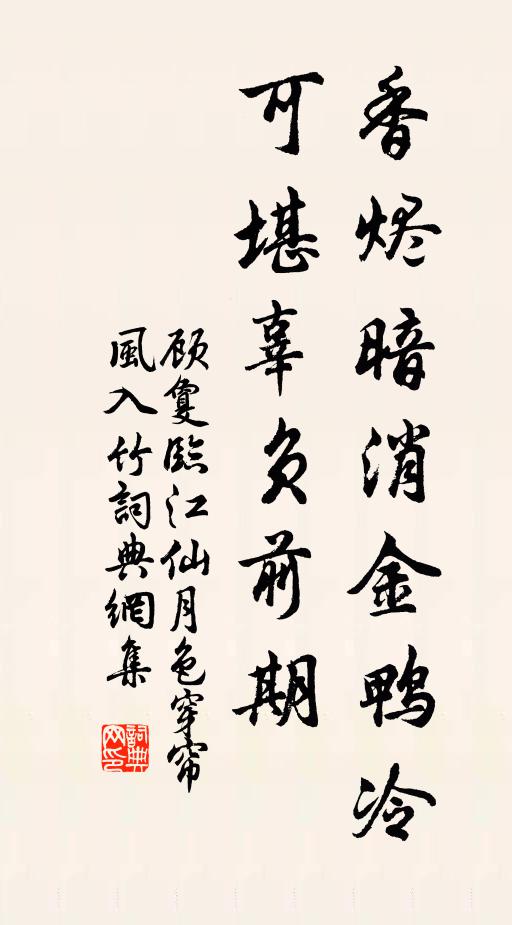 香烬暗消金鸭冷
可堪辜负前期
顾敻臨江仙月色穿帘
風入竹詞典網集
詞典网印